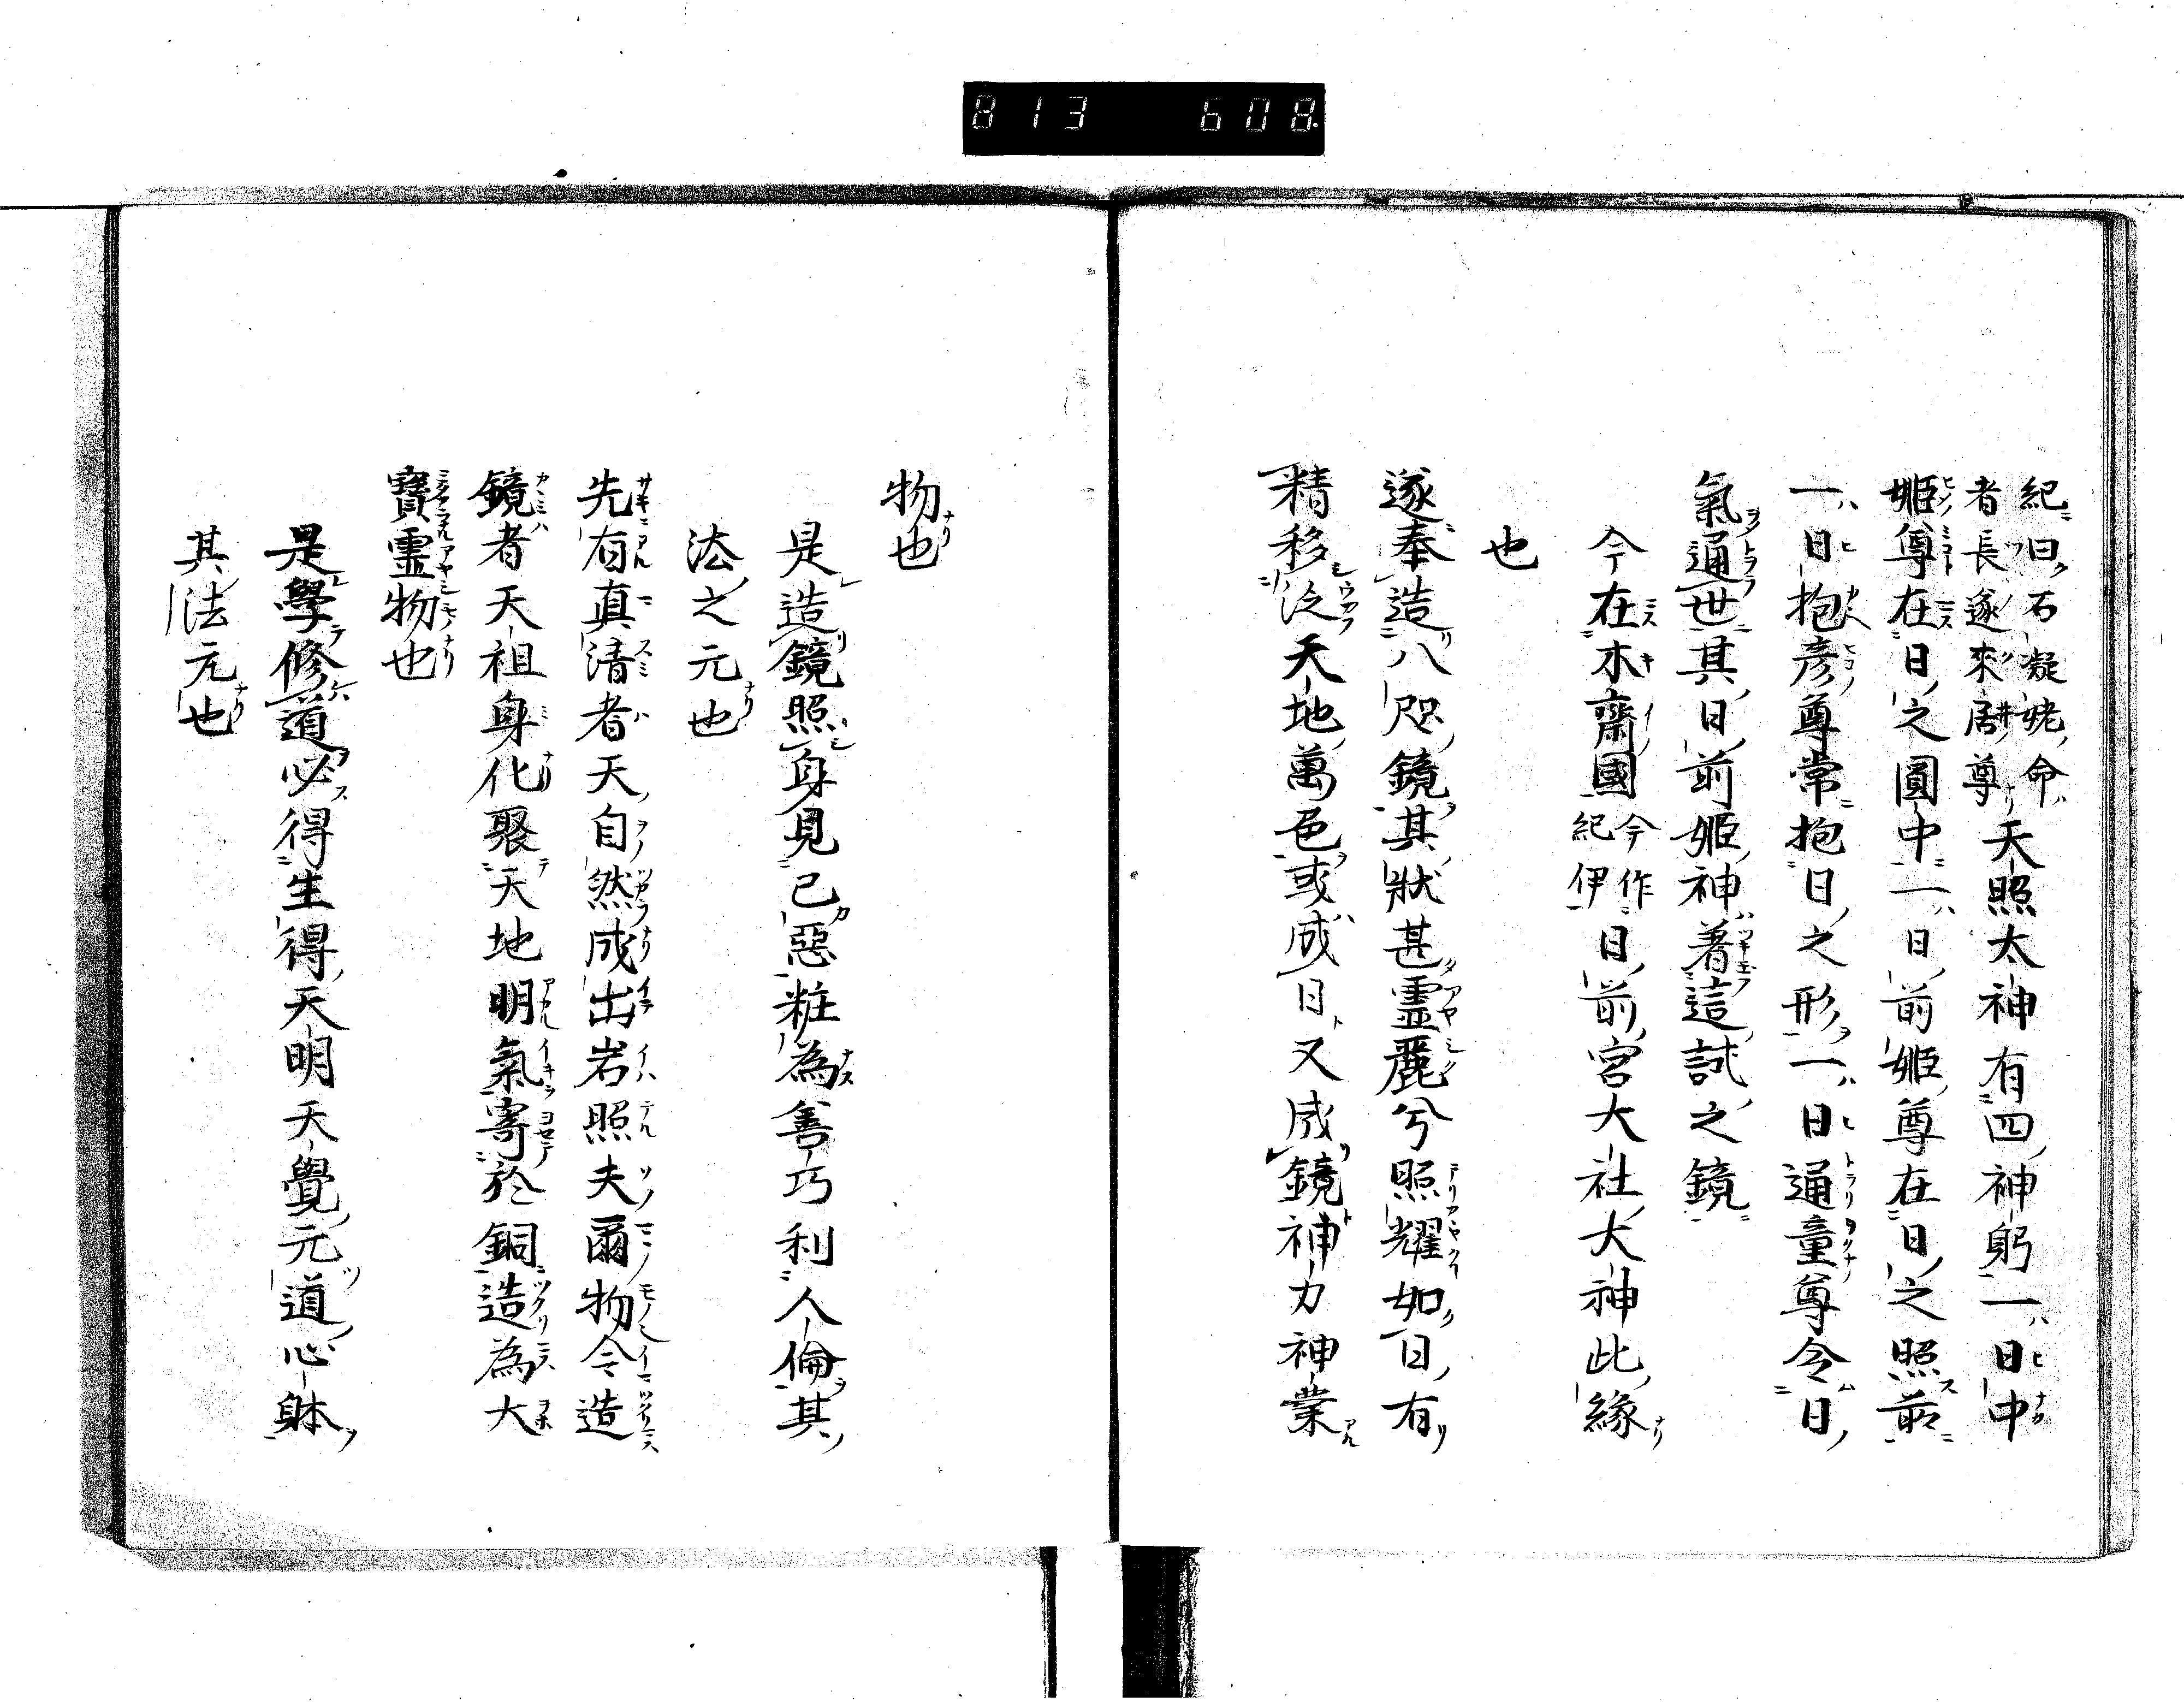 813 608
紀曰石凝姥命
者長遂來居尊
天照太神有四神躬一日中
姫尊在日之圓中一日前姫尊在日之照前
一日抱彦尊常抱日之形一日通童尊令日
氣通世其日前姫神著這試之鏡
今在木齋國今作紀伊日前宮大社大神此緣
也
遂奉造八咫鏡其狀甚靈麗兮照耀如日有
精移泛天地萬色或成日又成鏡神力神業
物也
是造鏡照身見已惡粧為善巧利人倫其
法之元也
先有真清者天自然成出岩照夫爾物令造
鏡者天祖身化聚天地明氣寄於銅造為大
寶靈物也
是學修道必得生得天明天覺元道心躰
其法元也